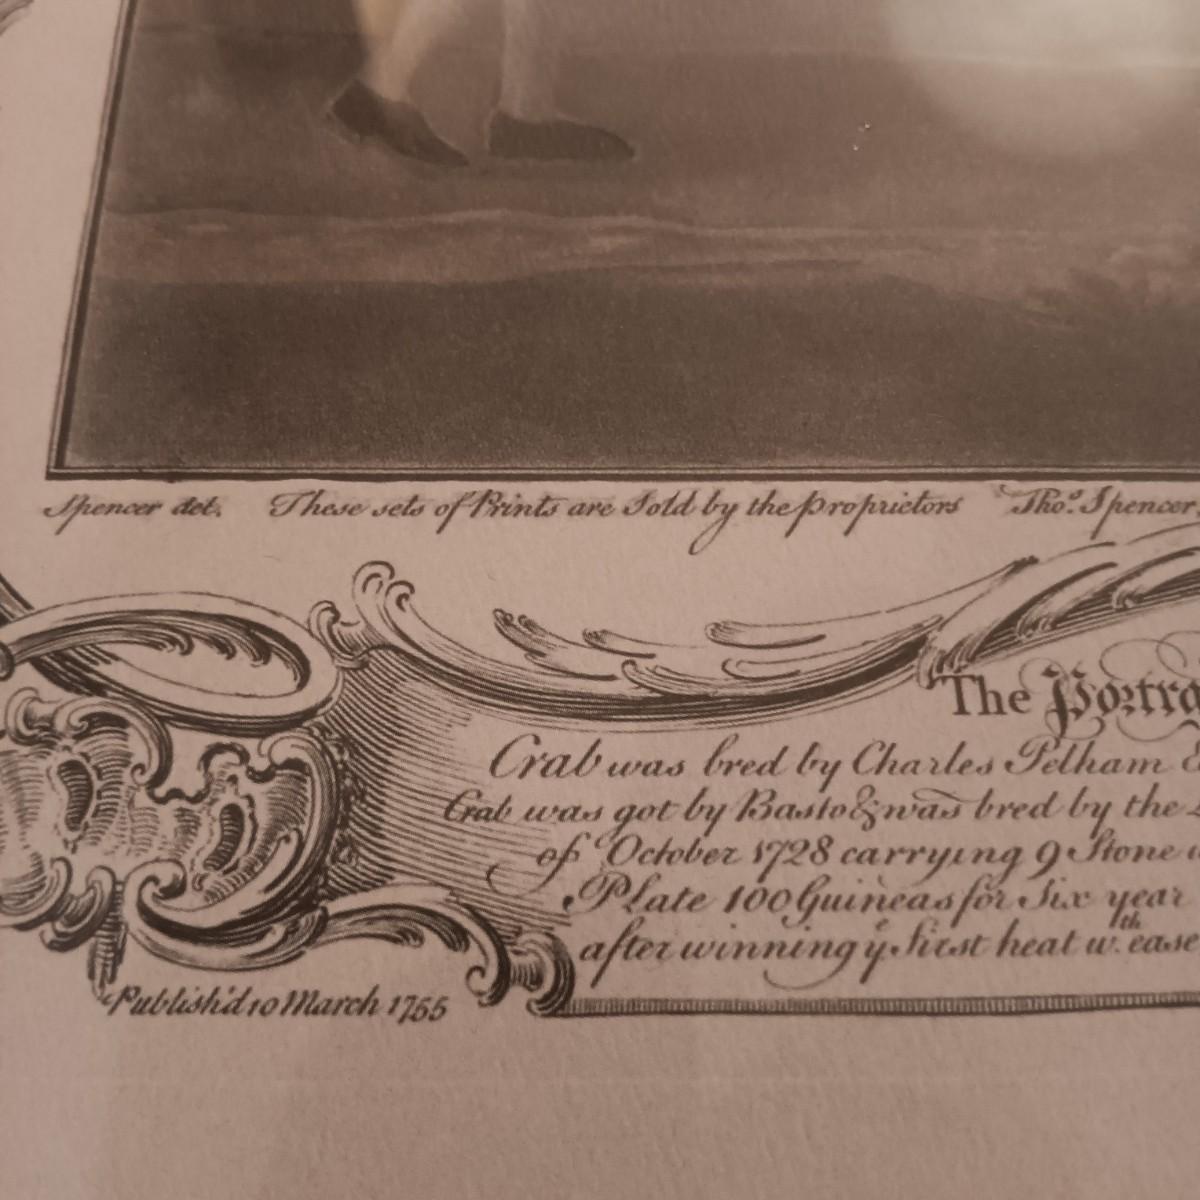 Spencer del. These sets of Prints are Sold by the Proprietors Tho.s Spencer,
The Portra
Crab was bred by Charles Pelham E
Crab was got by Basto & was bred by the
of October 1728 carrying 9 Stone
Plate 100 Guineas for Six year
after winning y.e first heat w.th ease
Publish'd 10 March 1755